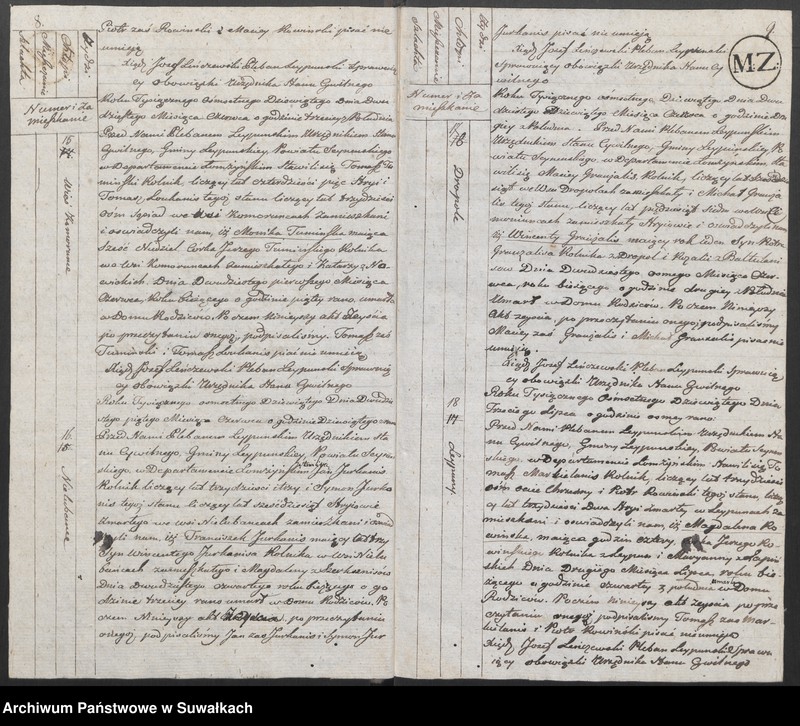 Piotr zaś Rowinski i Maciey Rowinski pisać nie
umieią
Xiądz Jozef Lenczewski Pleban Leypunski sprawuią-
cy obowiązki Urzędnika Stanu Cywilnego
Roku Tysiącznego Osmsetnego Dziewiątego Dnia Dwu-
dziestego Miesiąca Czerwca o godzinie trzeciey z Południa
Przed Nami Plebanem Leypunskim Urzędnikiem Stanu
Cywilnego, Gminy Leypunskiey Powiatu Seynenskiego
w Departamencie Łomżynskim stawili się Tomasz Tu-
minski Rolnik, liczący lat czterdzieści pięć Stryi i
Tomasz Loukanis tegoż stanu liczący lat trzydzieści
osm Sąsiad we Wsi Komoruncach zamieszkani
i oswiadczyli nam, iż Monika Tuminska maiąca
sześć Niedziel Corka Jerzego Tuminskiego Rolnika
we Wsi Komoruncach zamieszkałego i Katarzyny z No-
wickich. Dnia Dwudziestego pierwszego Miesiąca
Czerwca Roku bieżącego o godzinie piątey rano, umarła
w Domu Rodzicow. Po czem Ninieyszy akt zeyścia
po przeczytaniu onegoż, podpisaliśmy. Tomasz zaś
Tuminski i Tomasz Loukanis pisać nie umieią
Xiądz Jozef Lenczewski Pleban Leypunski Sprawuią-
cy obowiązki Urzędnika Stanu Cywilnego
Roku Tysiącznego osmsetnego Dziewiątego Dnia Dwudzie-
stego piątego Miesiąca Czerwca o godzinie Dziewiątey rano
Przed Nami Plebanem Leypunskim Urzędnikiem Sta-
nu Cywilnego, Gminy Leypunskiey Powiatu Seynen-
skiego, w Departamencie Łomżynskim Jan Jurkanis
Rolnik liczący lat trzydzieści i trzy i Symon Jurka-
nis tegoż stanu liczący lat sześćdziesiąt Stryiowie
we wsi Nielubancach zamieszkani i oswiad-
czyli nam, iż Franciszek Jurkanis maiący lat trzy
Syn Wincentego Jurkanisa Rolnika w Wsi Nielu-
bańcach zamieszkałego i Magdaleny
Dnia Dwudziestego czwartego roku bieżącego o go-
dzinie trzeciey rano umarł w Domu Rodzicow. Po
czem Ninieyszy akt Zeyścia, po przeczytaniu
onegoż, podpisaliśmy Jan zaś Jurkanis i Symon Jur
Numer i Za
mieszkanie
15
Wieś Komorunce
16
Nielubance
9
M.Z.
Jurkanis pisać nie umieią
Xiądz Jozef Lenczewski Pleban Leypunski
Sprawuiący obowiązki Urzędnika Stanu Cy-
wilnego
Roku Tysiącznego osmsetnego Dziewiątego Dnia Dwu-
dziestego Dziewiątego Miesiąca Czerwca o godzinie Dru-
giey z Południa. Przed Nami Plebanem Leypunskim
Urzędnikiem Stanu Cywilnego, Gminy Leypunskiey Po-
wiatu Seynenskiego w Departamencie Łomżynskim sta-
wili się Maciey Granzalis Rolnik, liczący lat
we Wsi Dropolach zamieszkały i Michał Granza-
lis tegoż stanu, liczący lat pięćdziesiąt Siedm we Wsi Ko-
moruncach zamieszkały Stryiowie i oswiadczyli nam
iż Wincenty Granzalis maiący rok ieden Syn Piotra
Granzalisa Rolnika z Dropol i Rozalii z Baltulani-
sow Dnia Dwudziestego osmego Miesiąca Czer-
wca, roku bieżącego o godzinie drugiey z Południa
Umarł w Domu Rodzicow. Po czem Ninieyszy
Akt zeyścia, po przeczytaniu onegoż podpisaliśmy
Maciey zaś Granzalis i Michał Granzalis pisać nie
umieią.
Xiądz Jozef Lenczewski Pleban Leypunski Sprawuią-
cy obowiązki Urzędnika Stanu Cywilnego
Roku Tysiącznego Osmsetnego Dziewiątego Dnia
Trzeciego Lipca o godzinie osmey rano
Przed Nami Plebanem Leypunskim Urzędnikiem Sta-
nu Cywilnego, Gminy Leypunskiey, Powiatu Seynen-
skiego w Departamencie Łomżynskim stawili się To-
masz Markielanis Rolnik, liczący lat trzydzieści
osm Ociec Chrzestny i Piotr Rowinski tegoż stanu, liczą-
cy lat trzydzieści Dwa Stryi zmarły w Leypunach za-
mieszkani i oswiadczyli nam, iż Magdalena Ro-
winska, maiąca godzin cztery, Corka Jerzego Ro-
winskiego Rolnika z Leypun i Maryanny z
skich Dnia Drugiego Miesiąca Lipca, roku bie-
żącego o godzinie czwartey z południa umarła w Domu
Rodzicow. Po czem ninieyszy akt zeyścia po prze-
czytaniu onegoż podpisaliśmy Tomasz zaś Mar-
kielanis i Piotr Rowinski pisać nieumieią
Xiądz Jozef Lenczewski Pleban Leypunski Sprawu-
iący obowiązki Urzędnika Stanu Cywilnego
Numer i Za
mieszkanie
17
Dropole
18
Leypuny
Archiwum Państwowe w Suwałkach